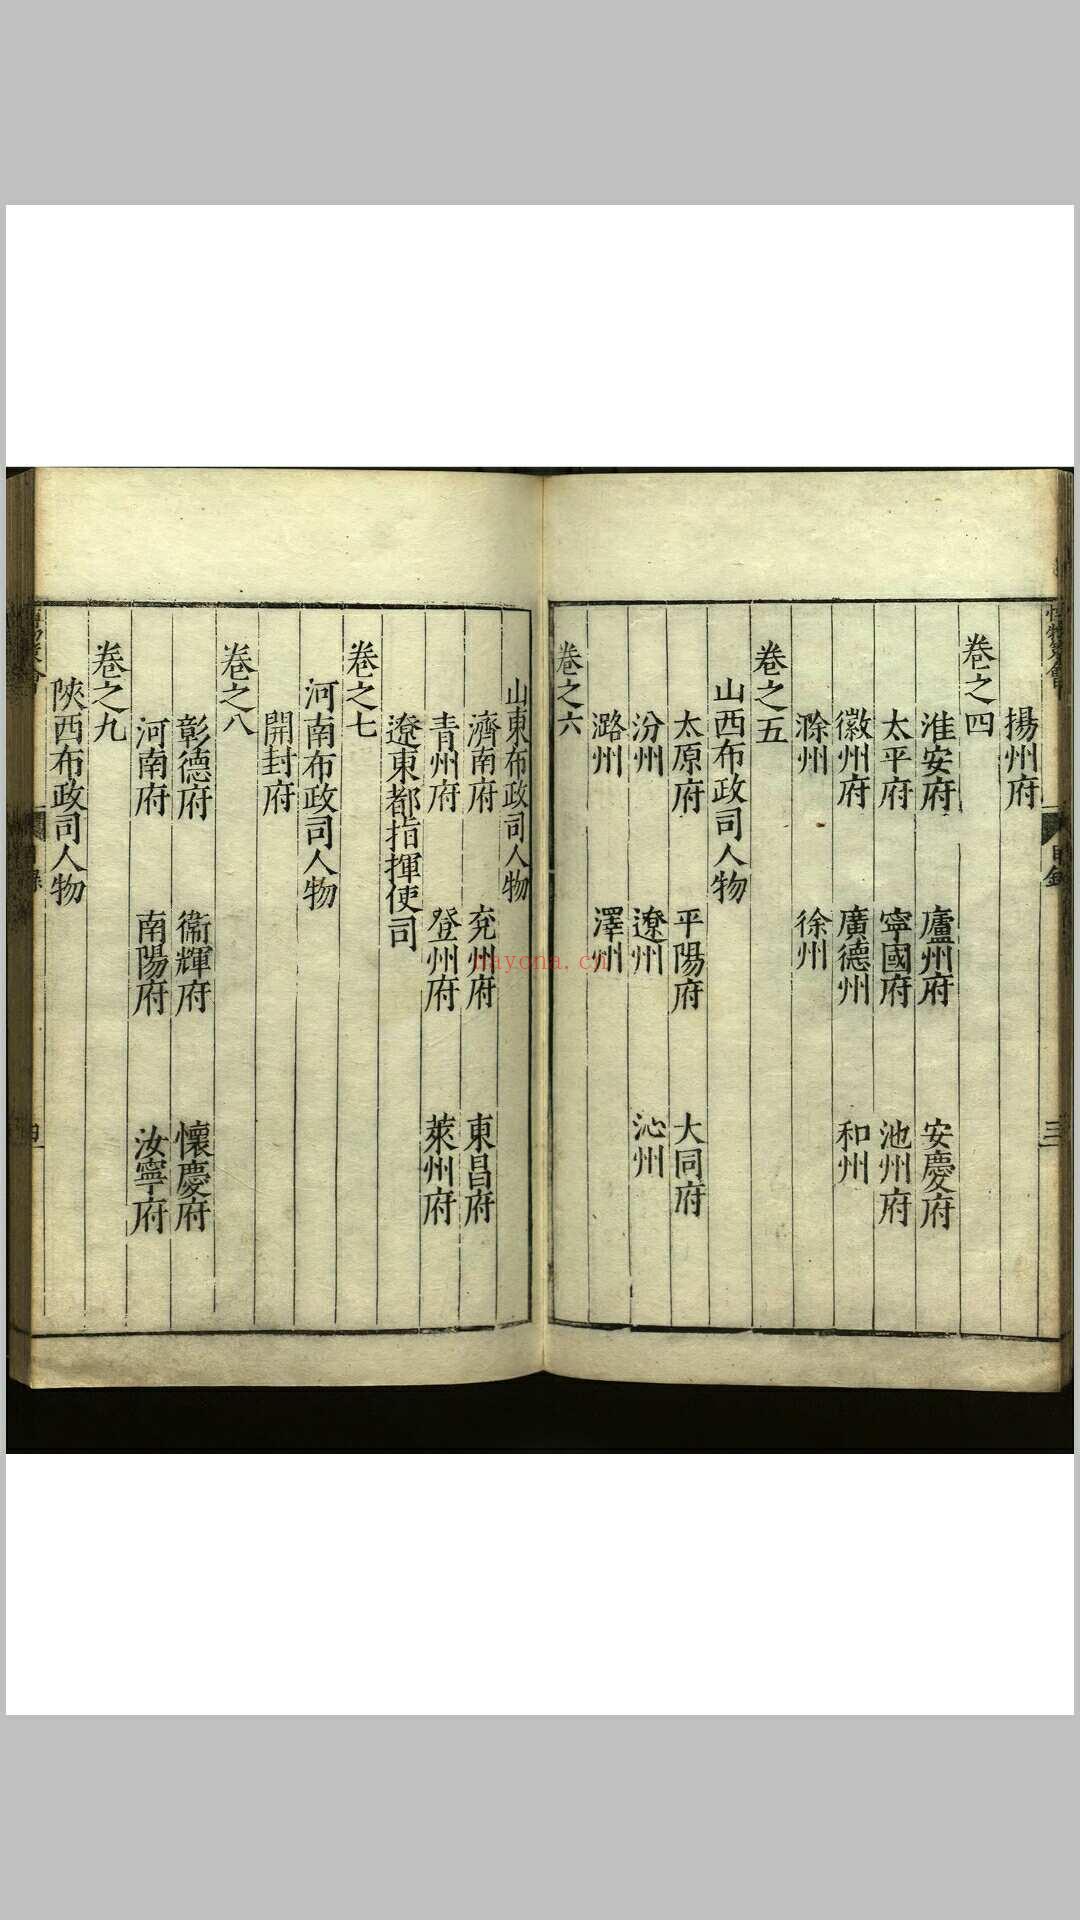 揚州府
卷之四
淮安府 廬州府 安慶府
太平府 寧國府 池州府
徽州府 廣德州 和州
滁州 徐州
卷之五
山西布政司人物
太原府 平陽府 大同府
汾州 遼州 沁州
潞州 澤州
卷之六
山東布政司人物
濟南府 兗州府 東昌府
青州府 登州府 萊州府
遼東都指揮使司
卷之七
河南布政司人物
開封府
卷之八
彰德府 衞輝府 懷慶府
河南府 南陽府 汝寧府
卷之九
陝西布政司人物
目錄
三
nayona.cn